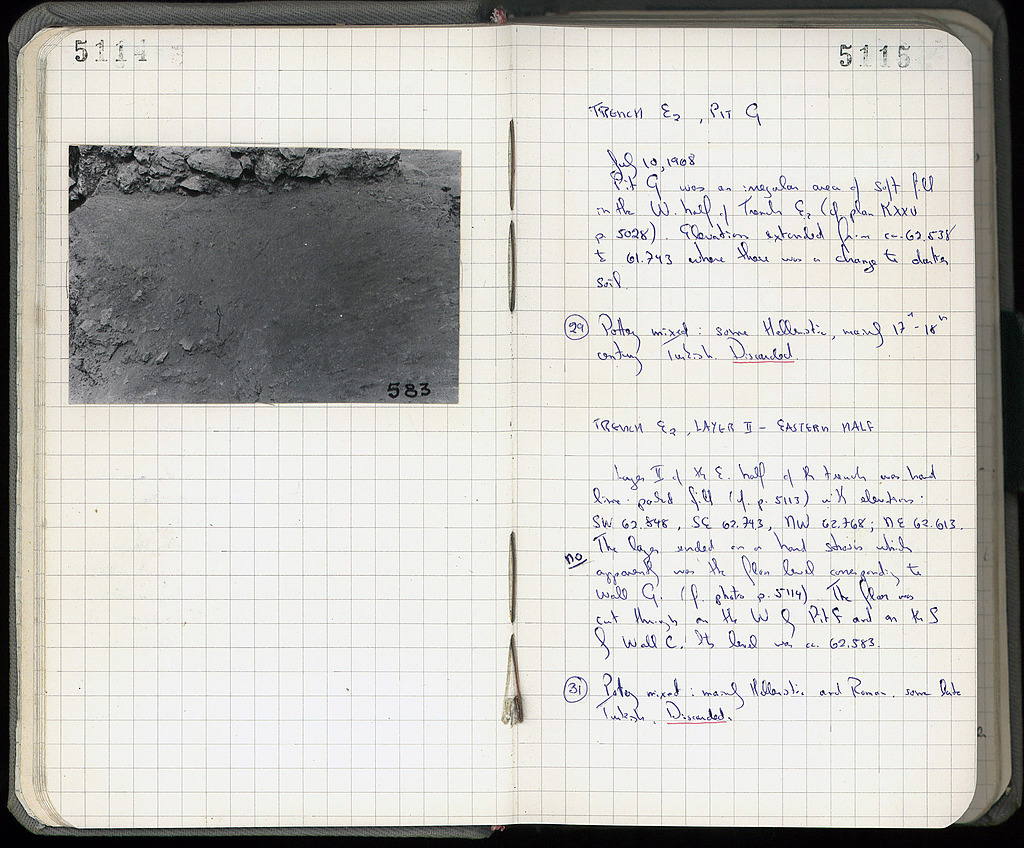 5114
583
5115
TRENCH E2, PIT G
July 10, 1968
Pit G was an irregular area of soft fill
in the W. half of Trench E2 (cf plan KXXV
p. 5028). Elevation extended from ca. 62.538
to 61.743 where there was a change to darker
soil.
29 Pottery mixed: some Hellenistic, mainly 17th-18th
century Turkish. Discarded.
TRENCH E2, LAYER II - EASTERN HALF
Layer II of the E. half of the trench was hard
lime-packed fill (cf p. 5113) with elevations:
SW 62.848, SE 62.743, NW 62.768; NE 62.613.
The layer ended on a hard strosis which
no
apparently was the floor level corresponding to
Wall G. (cf. photo p. 5114) The floor was
cut through on the W by Pit F and on the S
by Wall C. Its level was ca. 62.583.
31 Pottery mixed: mainly Hellenistic and Roman, some late
Turkish. Discarded.